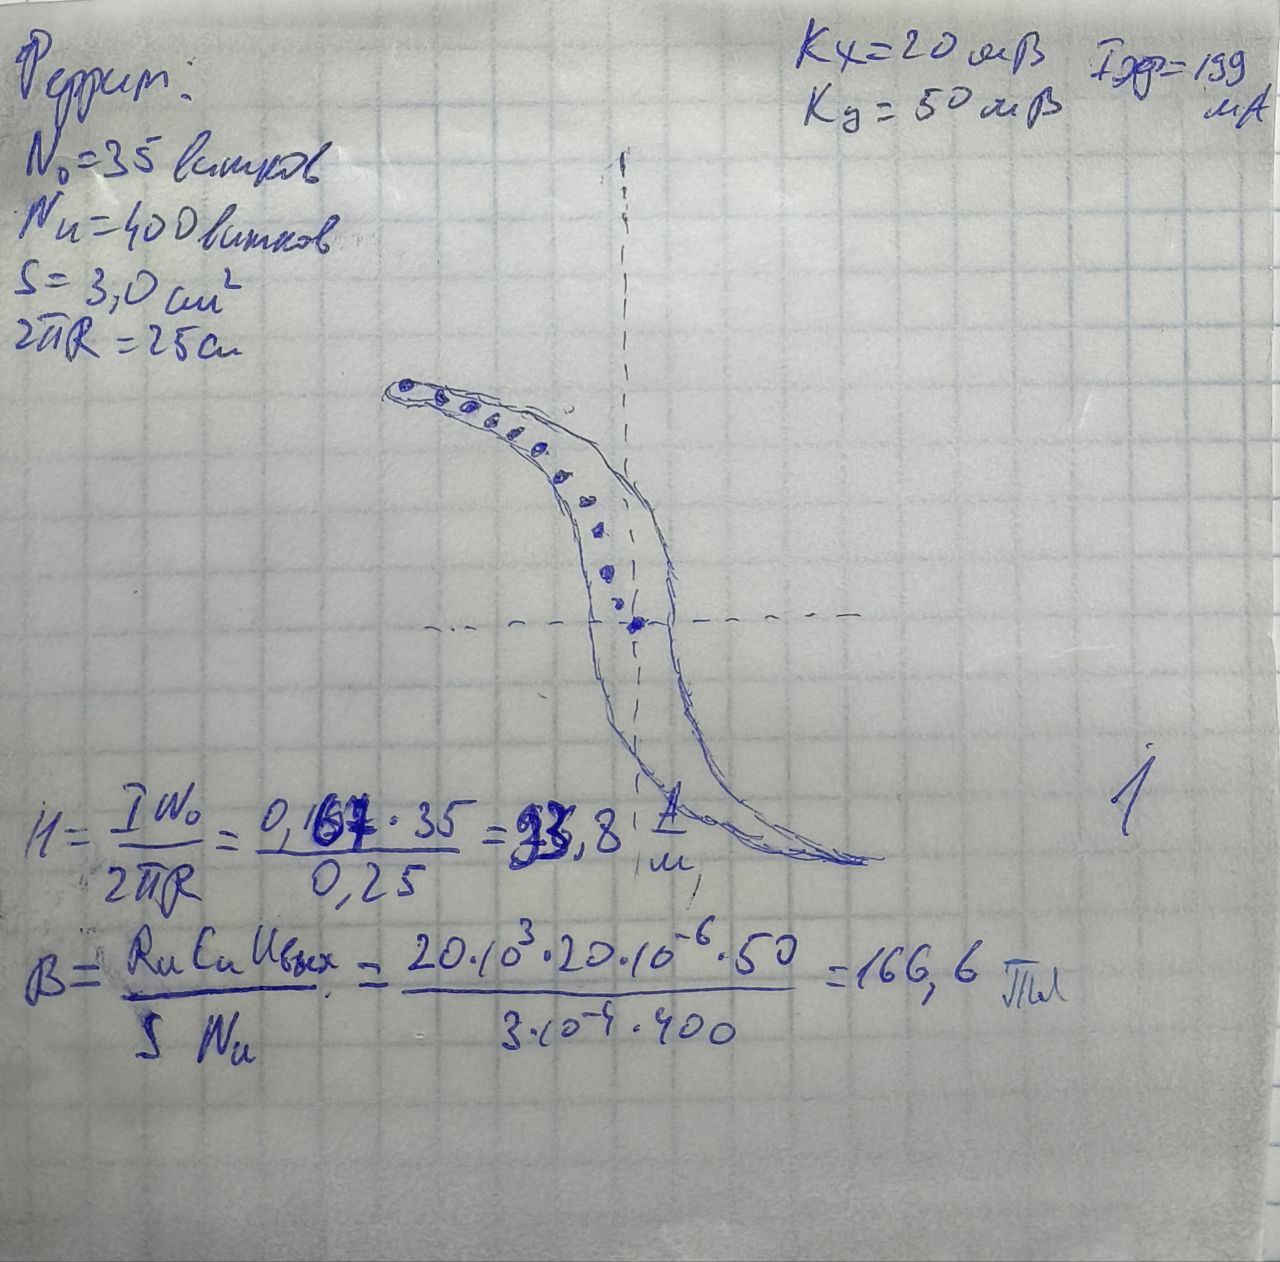 Феррит:
N₀=35 витков
Nи=400 витков
S= 3,0 см²
2πR =25см
Kx=20 мВ
Kу= 50 мВ
Iэф=199 мА
H= IN₀/2πR = 0,167·35/0,25 = 93,8 А/м
B= RиCиUвых/S Nи = 20·10³·20·10⁻⁶·50/3·10⁻⁴·400 =166,6 Тл
1